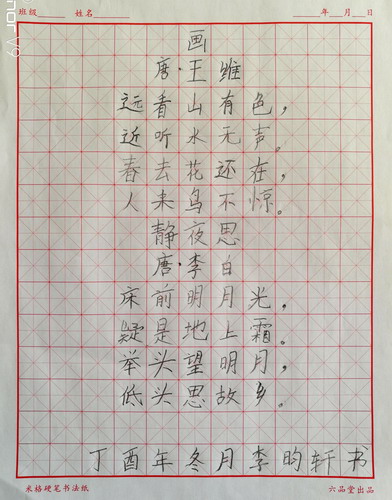 班级 姓名 年 月 日
画
唐·王维
远看山有色，
近听水无声。
春去花还在，
人来鸟不惊。
静夜思
唐·李白
床前明月光，
疑是地上霜。
举头望明月，
低头思故乡。
丁酉年冬月李昀轩书
米格硬笔书法纸 六品堂出品